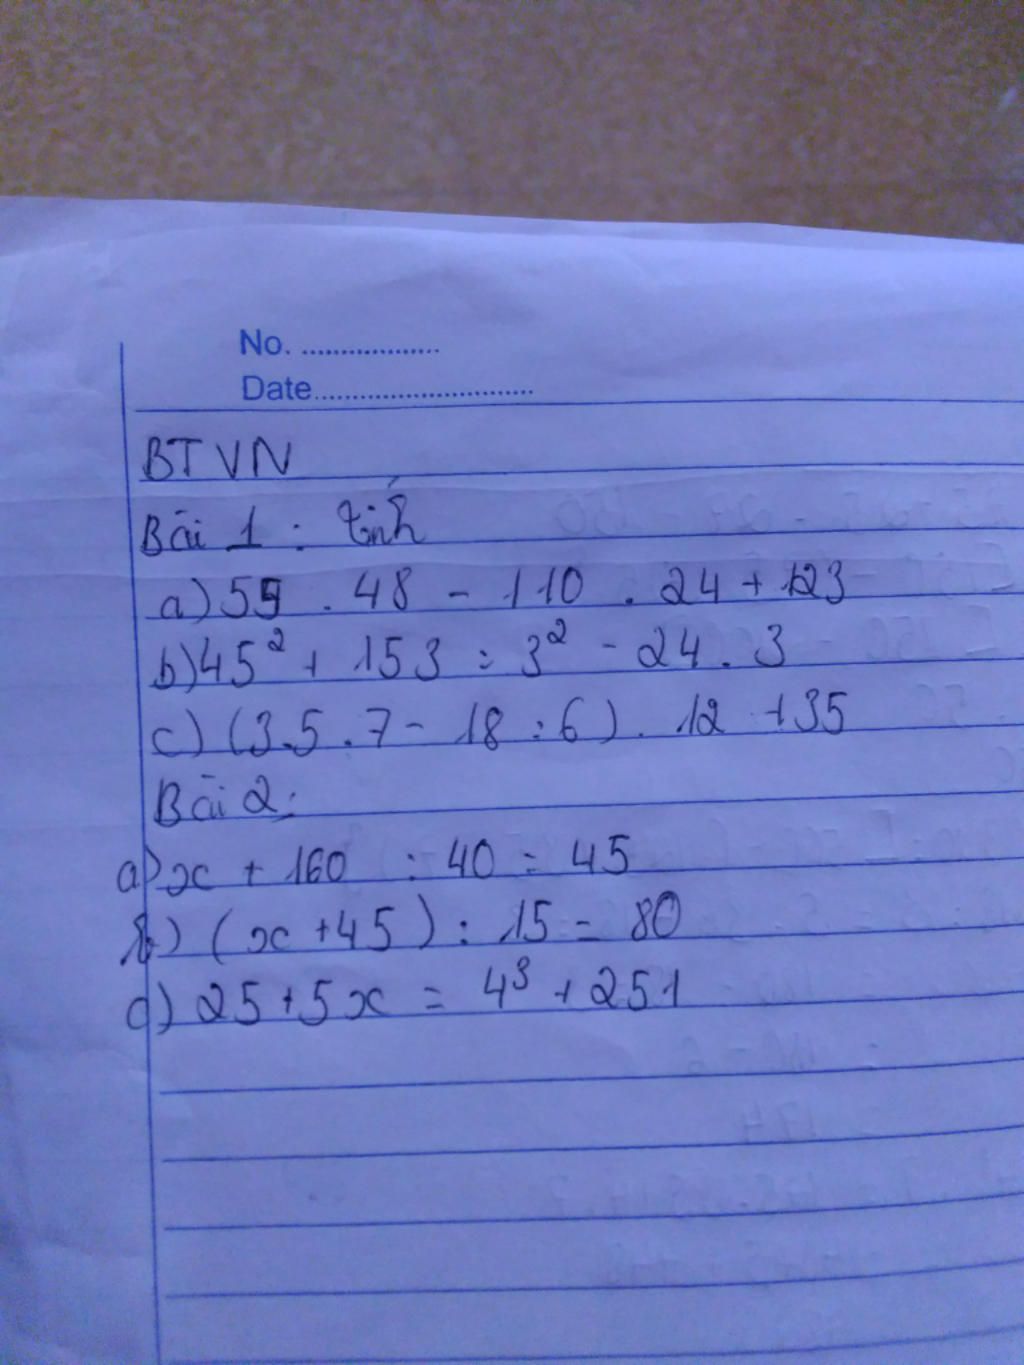 No. ..................
Date............................
BTVN
Bài 1 : tính
a) 55 . 48 - 110 . 24 + 123
b) 45² + 153 : 3² - 24 . 3
c) (3.5.7 - 18 : 6) . 12 + 35
Bài 2 :
a) x + 160 : 40 = 45
b) (x + 45) : 15 = 80
d) 25 + 5x = 4³ + 251